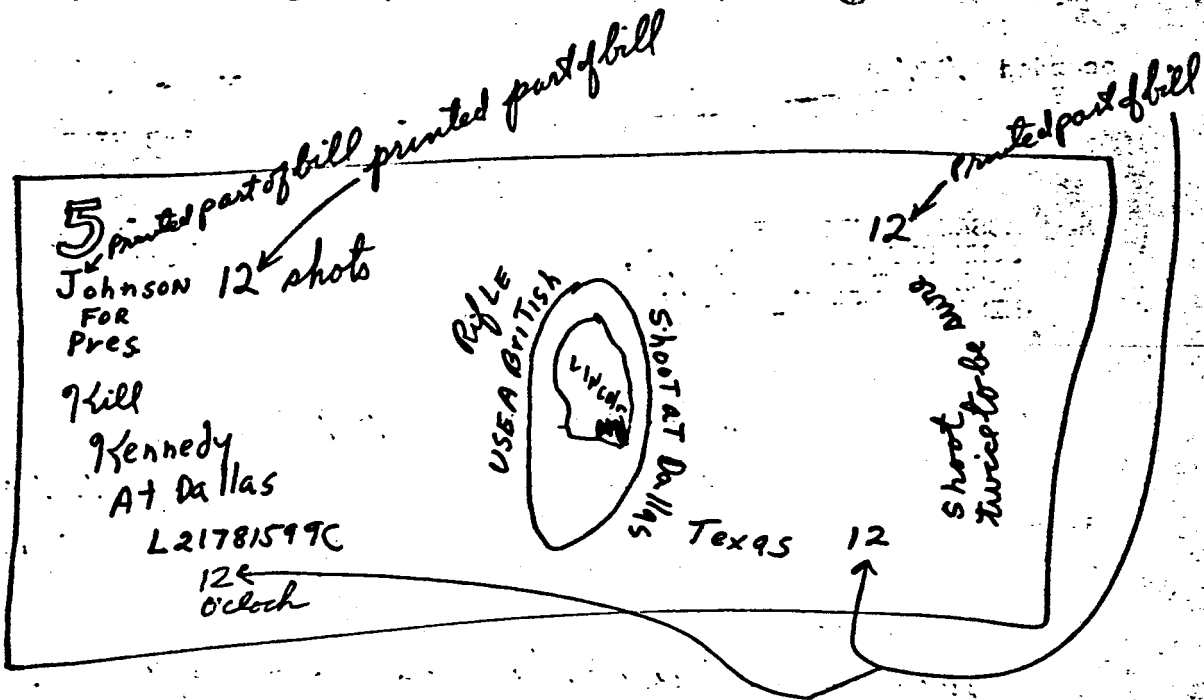 printed part of bill
Printed part of bill
5 printed part of bill
Johnson 12 shots
FOR
Pres
Kill
Kennedy
At Dallas
L21781599C
12
O'clock
RIfLE
USE A BriTish
LINCOLN
ShooT aT Dallas
Texas
12
12
shoot
twice to be
sure